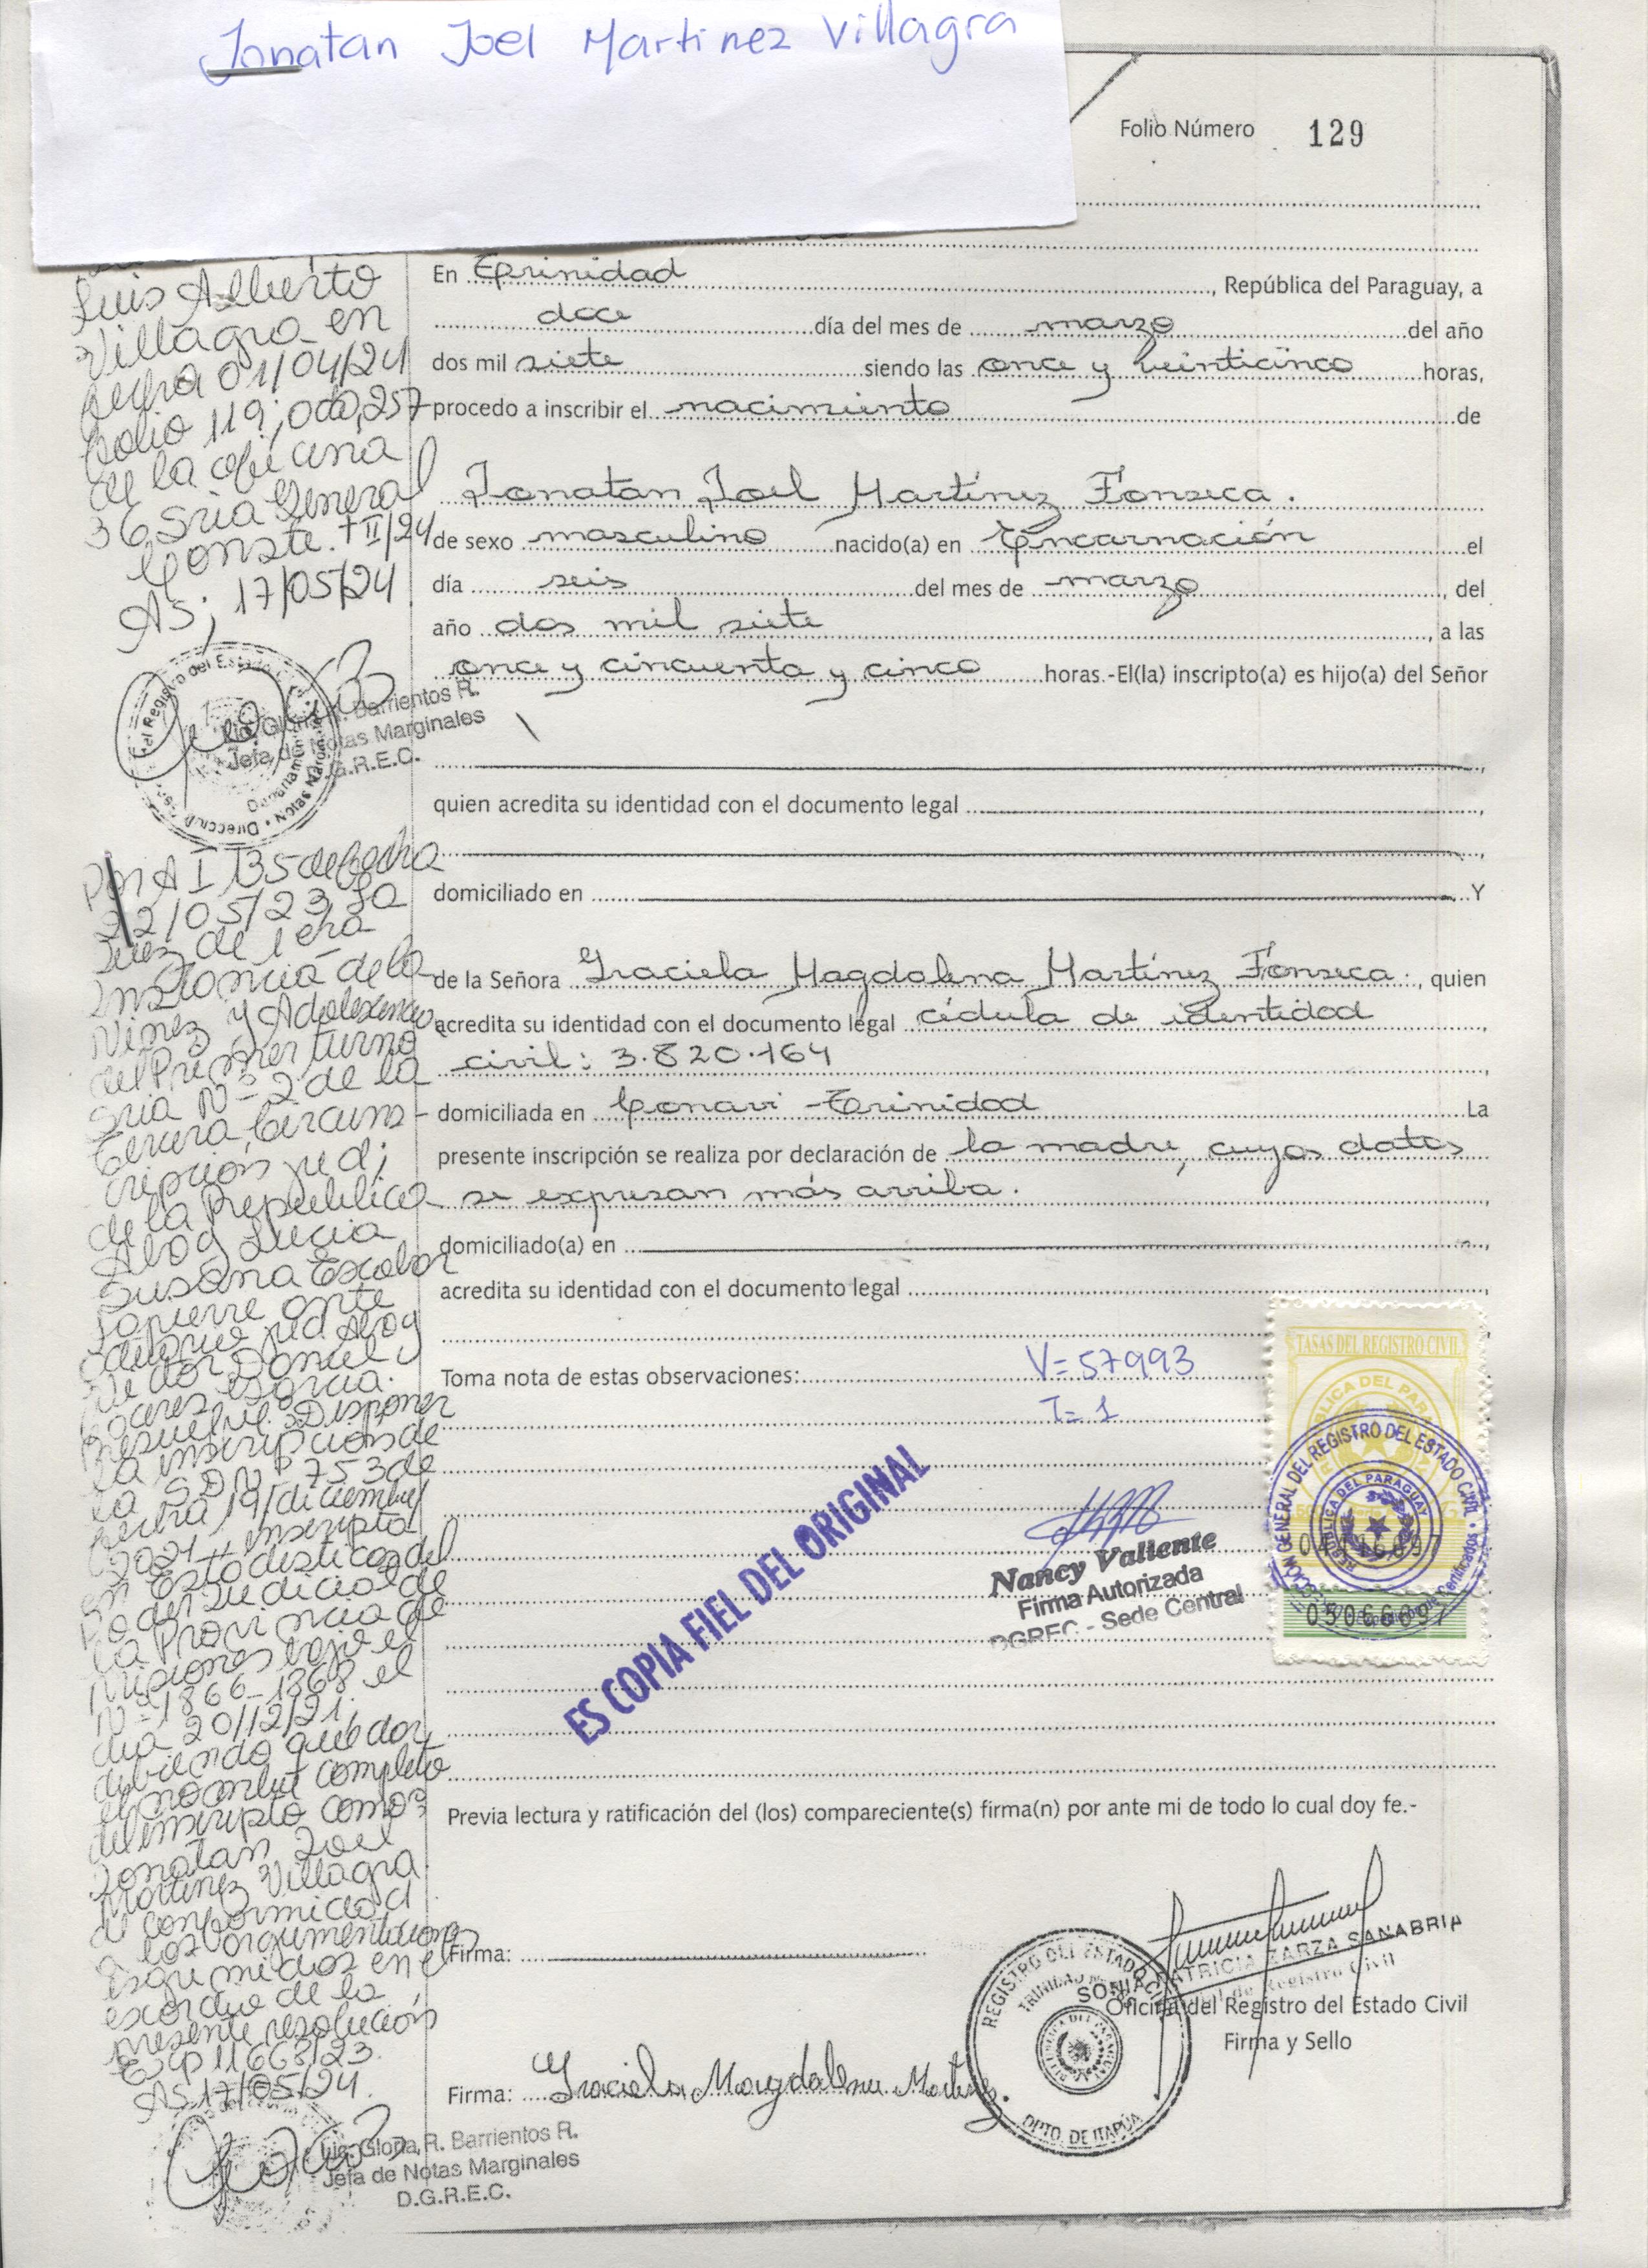 Jonatan Joel Martinez Villagra
Folio Número 129
En Trinidad, República del Paraguay, a
doce día del mes de marzo del año
dos mil siete siendo las once y veinticinco horas,
procedo a inscribir el nacimiento de
Jonatan Joel Martínez Fonseca.
de sexo masculino nacido(a) en Encarnación el
día seis del mes de marzo, del
año dos mil siete, a las
once y cincuenta y cinco horas.-El(la) inscripto(a) es hijo(a) del Señor
quien acredita su identidad con el documento legal
domiciliado en Y
de la Señora Graciela Magdalena Martínez Fonseca, quien
acredita su identidad con el documento legal cédula de identidad
civil: 3.820.164
domiciliada en Conavi - Trinidad La
presente inscripción se realiza por declaración de la madre, cuyos datos
se expresan más arriba.
domiciliado(a) en
acredita su identidad con el documento legal
Toma nota de estas observaciones:
V=57993
T=1
ES COPIA FIEL DEL ORIGINAL
Nancy Valiente
Firma Autorizada
DGREC - Sede Central
TASAS DEL REGISTRO CIVIL
REPUBLICA DEL PARAGUAY
Previa lectura y ratificación del (los) compareciente(s) firma(n) por ante mi de todo lo cual doy fe.-
Firma:
SONIA PATRICIA ZARZA SANABRIA
Oficial del Registro Civil
Oficina del Registro del Estado Civil
Firma y Sello
REGISTRO DEL ESTADO CIVIL
TRINIDAD
DPTO. DE ITAPÚA
Firma: Graciela Magdalena Martinez.
Luis Alberto
Villagra en
fecha 01/04/24
folio 119;
de la oficina
36 Sria General
Conste. + II/24
AS; 17/05/24
Lic. Gloria R. Barrientos R.
Jefa de Notas Marginales
D.G.R.E.C.
Por A I 135 de fecha
22/05/23 la
Juez de 1era
Instancia de la
Niñez y Adolescencia
del Primer turno
Sria Nº 2 de la
tercera Circuns-
cripción jud;
de la Republica
Abog Lucia
Susana Escobar
ante
jud Abog
Daniel
Garcia.
Resuelve: Disponer
la inscripción de
la S.D Nº 753 de
fecha 19/diciembre/
2021, inscripta
en Estadisticas del
Poder Judicial de
la Provincia de
Misiones bajo el
Nº 1866-1368 el
dia 20/12/21,
debiendo quedar
el nombre completo
del inscripto como:
Jonatan Joel
Martinez Villagra
de conformidad
a los argumentaciones
esgrimidos en el
exordio de la
presente resolución
Exp 11663/23.
AS 17/05/24.
Lic. Gloria R. Barrientos R.
Jefa de Notas Marginales
D.G.R.E.C.